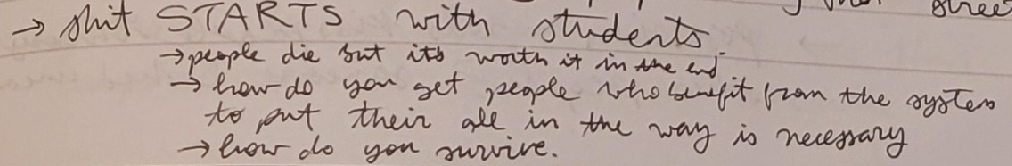 stree
→ shit STARTS with students.
→ people die but its worth it in the end.
→ how do you get people who benefit from the system
to put their all in the way is necessary
→ how do you survive.